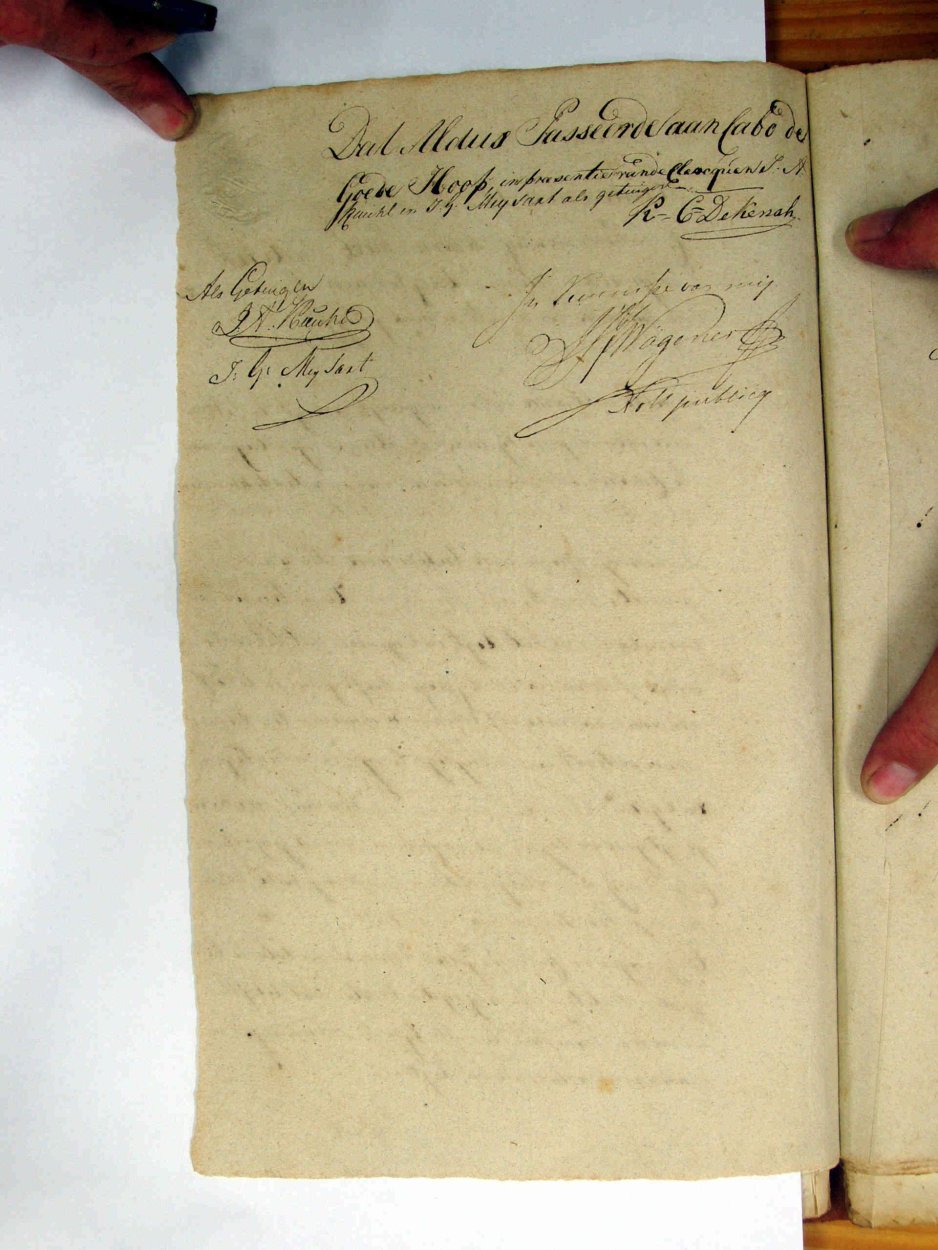 Dat Aldus Passeerde aan Cabo de
Goede Hoop, in præsentie van de Clercquen J: A:
Hauhl en J: G: Meysart als getuigen
R= C= Dekenah
Als Getuigen
J A: Hauhl
J: G: Meysart
In Kennisse van mij
Wagener
Not: publicq